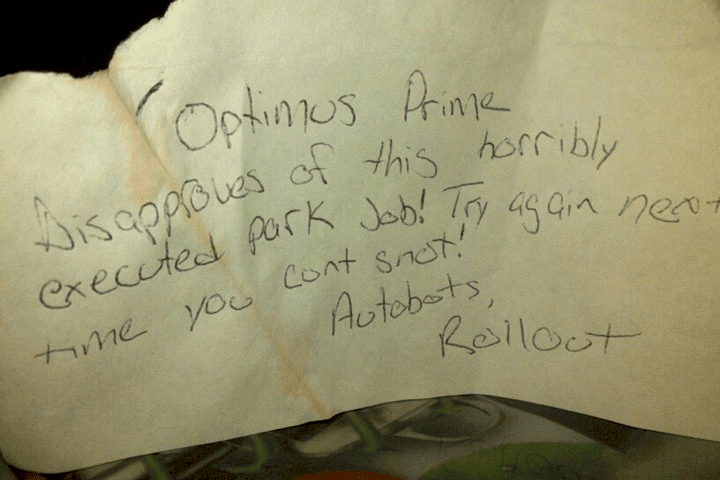 Optimus Prime
Disapproves of this horribly
executed park Job! Try again next
time you cont snot!
Autobots,
Rollout